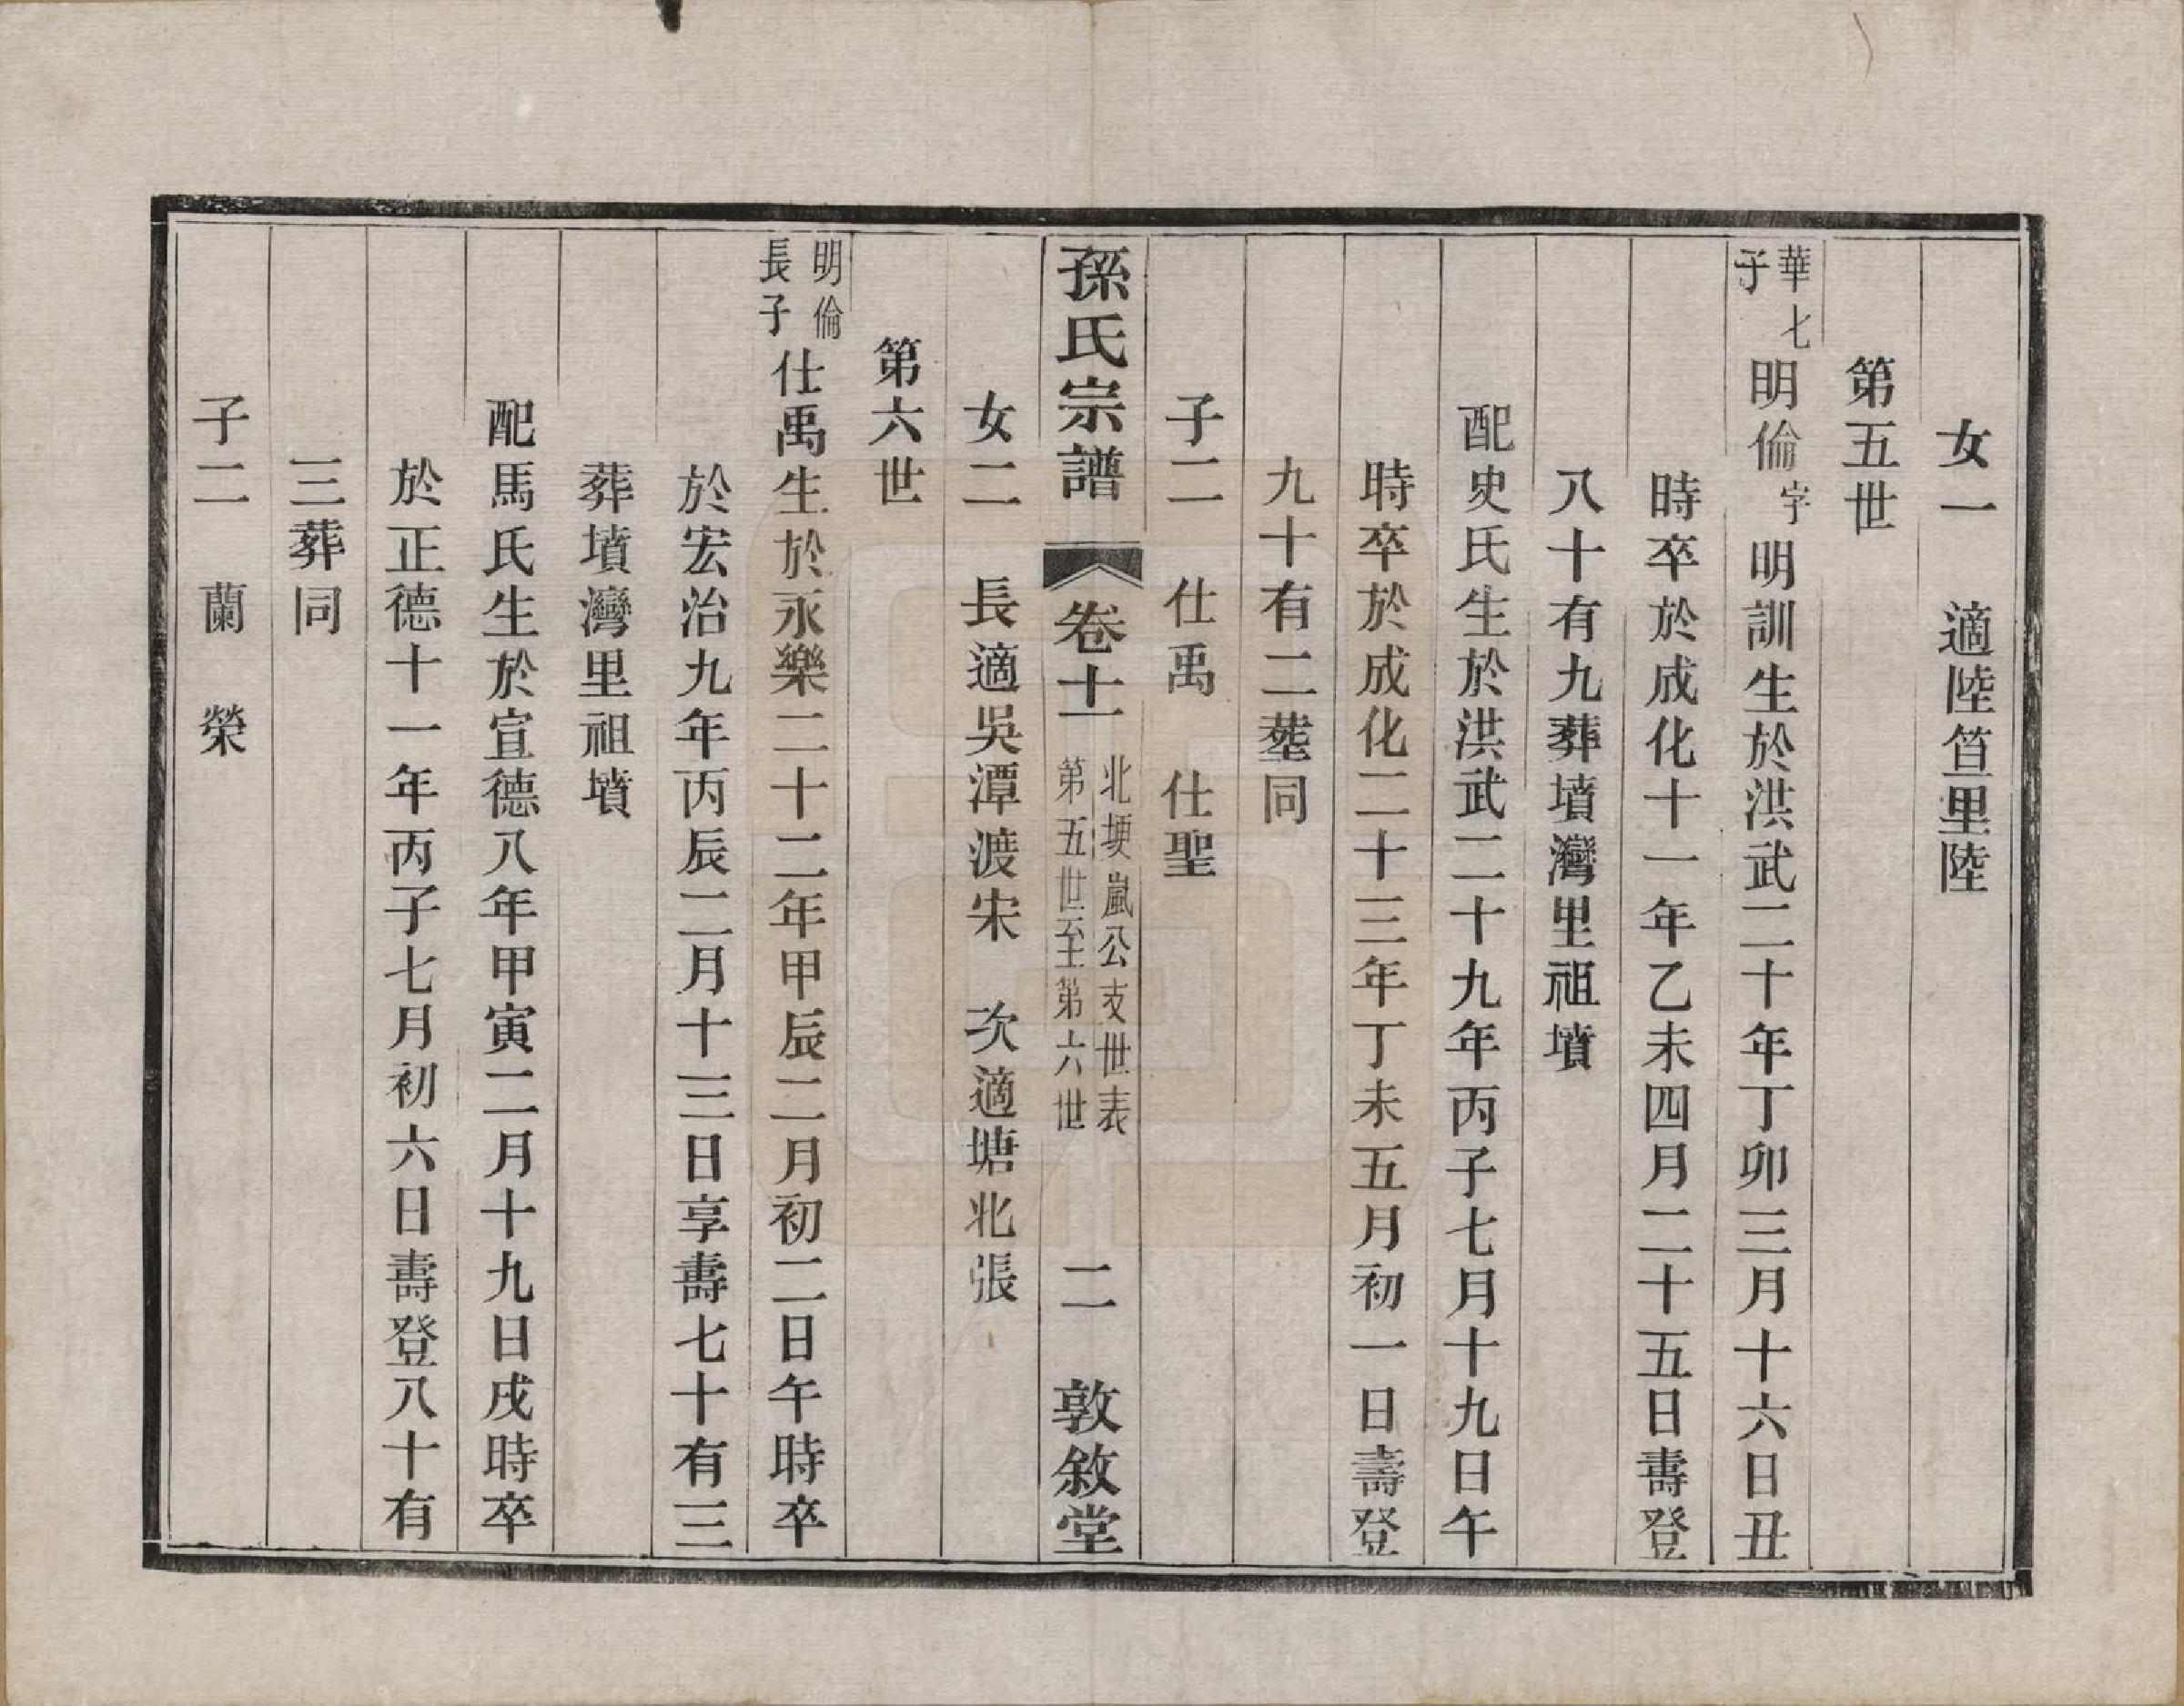 女一 適陸笪里陸
第五世
華七子 明倫字明訓生於洪武二十年丁卯三月十六日丑
時卒於成化十一年乙未四月二十五日壽登
八十有九葬墳灣里祖墳
配史氏生於洪武二十九年丙子七月十九日午
時卒於成化二十三年丁未五月初一日壽登
九十有二塟同
子二 仕禹 仕聖
孫氏宗譜 卷十一 北埂嵐公支世表 第五世至第六世 二 敦敘堂
女二 長適吳潭渡宋 次適塘北張
第六世
明倫長子 仕禹生於永樂二十二年甲辰二月初二日午時卒
於宏治九年丙辰二月十三日享壽七十有三
葬墳灣里祖墳
配馬氏生於宣德八年甲寅二月十九日戌時卒
於正德十一年丙子七月初六日壽登八十有
三葬同
子二 蘭 榮